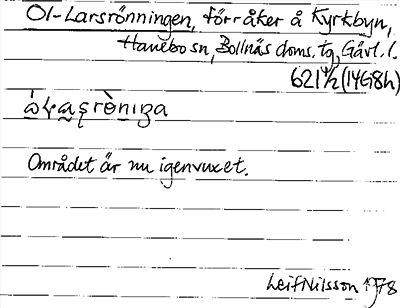 Ol-Larsrönningen, förr åker å Kyrkbyn,
Hanebo sn, Bollnäs doms. tg, Gävl. l.
621 ½ (14G8h)
Området är nu igenvuxet.
Leif Nilsson 1978